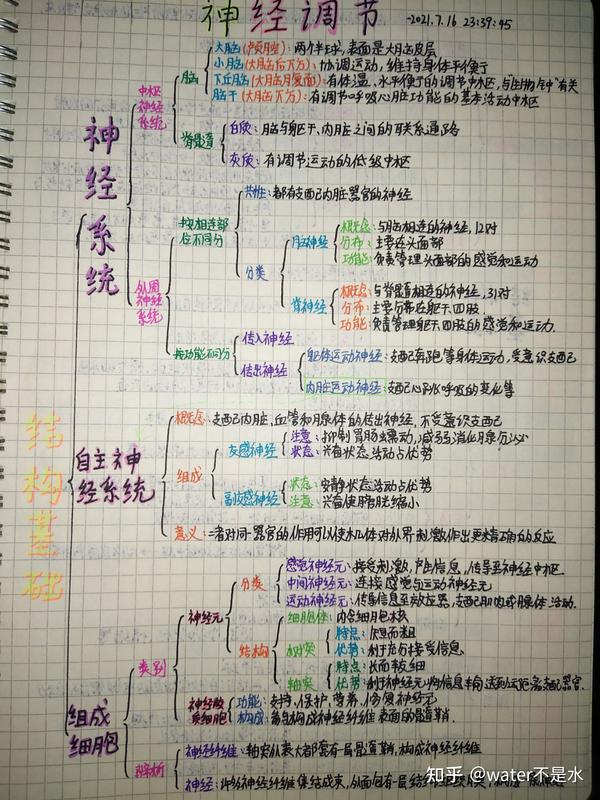 神经调节
-2021.7.16 23:39:45
结构基础
神经系统
中枢神经系统
脑
大脑(颅腔): 两个半球,表面是大脑皮层
小脑(大脑后下方): 协调运动,维持身体平衡
下丘脑(大脑腹面): 有体温、水平衡的调节中枢,与生物钟有关
脑干(大脑下方): 有调节呼吸心脏功能的基本活动中枢
脊髓
白质: 脑与躯干、内脏之间的联系通路
灰质: 有调节运动的低级中枢
外周神经系统
按相连部位不同分
共性: 都有支配内脏器官的神经
分类
脑神经
概念: 与脑相连的神经,12对
分布: 主要在头面部
功能: 负责管理头面部的感觉和运动
脊神经
概念: 与脊髓相连的神经,31对
分布: 主要分布在躯干、四肢
功能: 负责管理躯干、四肢的感觉和运动.
按功能不同分
传入神经
传出神经
躯体运动神经: 支配奔跑等身体运动,受意识支配
内脏运动神经: 支配心跳呼吸的变化等
自主神经系统
概念: 支配内脏,血管和腺体的传出神经,不受意识支配
组成
交感神经
注意: 抑制胃肠蠕动,减弱消化腺分泌
状态: 兴奋状态活动占优势
副交感神经
状态: 安静状态活动占优势
注意: 兴奋使瞳孔缩小
意义: 二者对同一器官的作用可以使机体对外界刺激作出更精确的反应
组成细胞
类别
神经元
分类
感觉神经元: 接受刺激,产生信息,传导至神经中枢.
中间神经元: 连接感觉与运动神经元
运动神经元: 传导信息至效应器,支配肌肉或腺体活动.
结构
细胞体: 内含细胞核
树突
特点: 短而粗
优势: 利于充分接受信息.
轴突
特点: 长而较细
优势: 利于神经元将信息输送到远距离支配器官.
神经胶质细胞
功能: 支持,保护,营养,修复神经元
构成: 参与构成神经纤维表面的髓鞘.
辨析
神经纤维: 轴突外表大都套有一层髓鞘,构成神经纤维
神经: 许多神经纤维集结成束,外面包有一层结缔组织膜
知乎 @water不是水